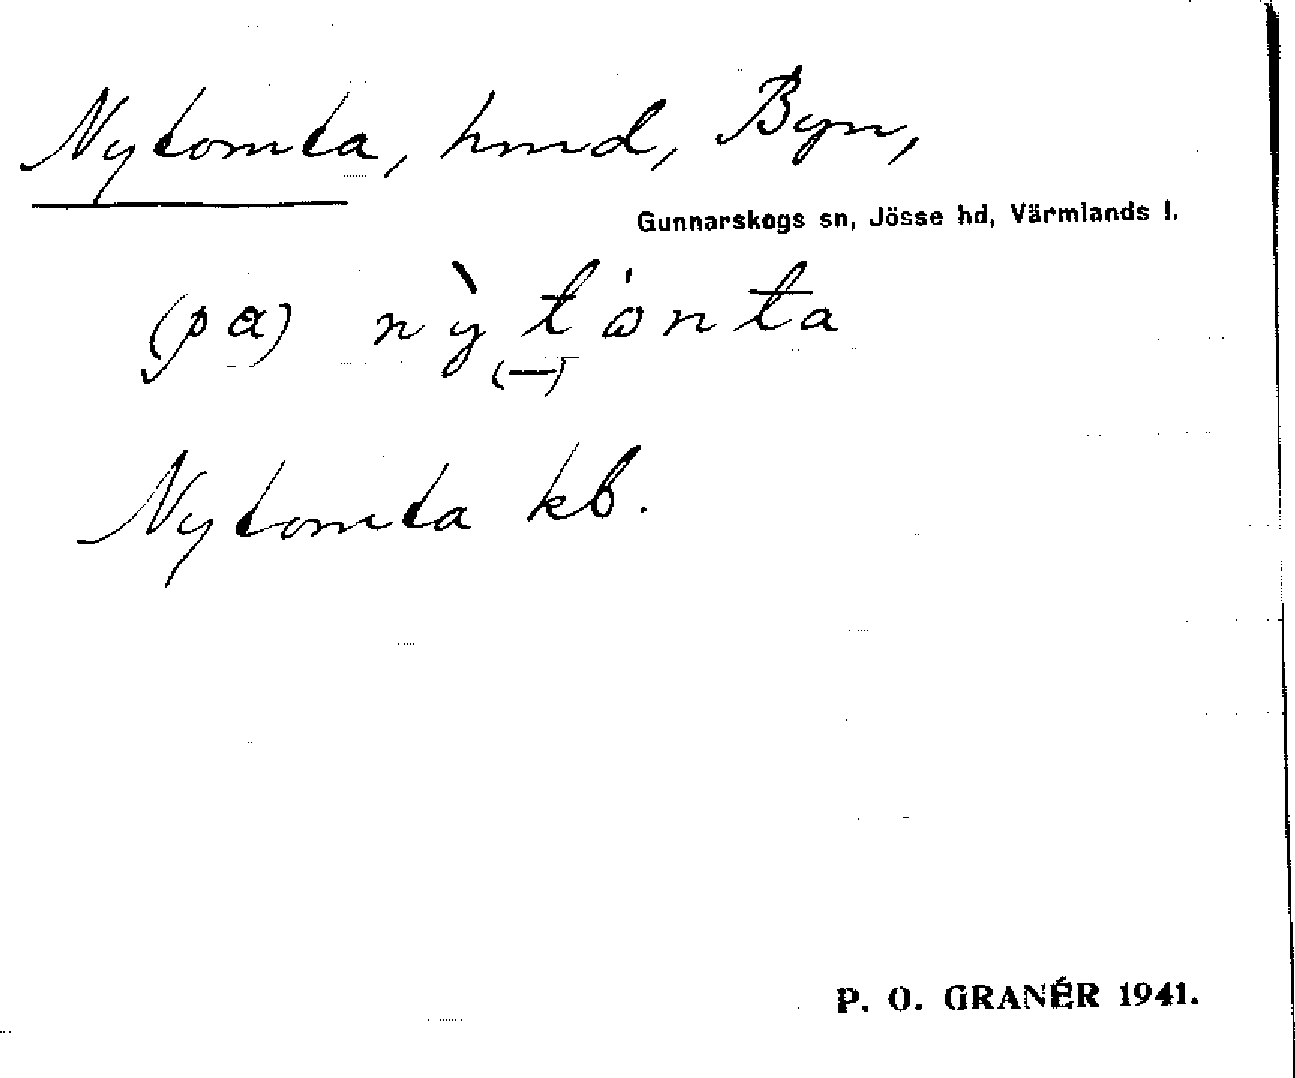 Nytomta, hmd, Byn,
Gunnarskogs sn, Jösse hd, Värmlands l.
(pa) nỳtónta
(—)
Nytomta kb.
P. O. GRANÉR 1941.